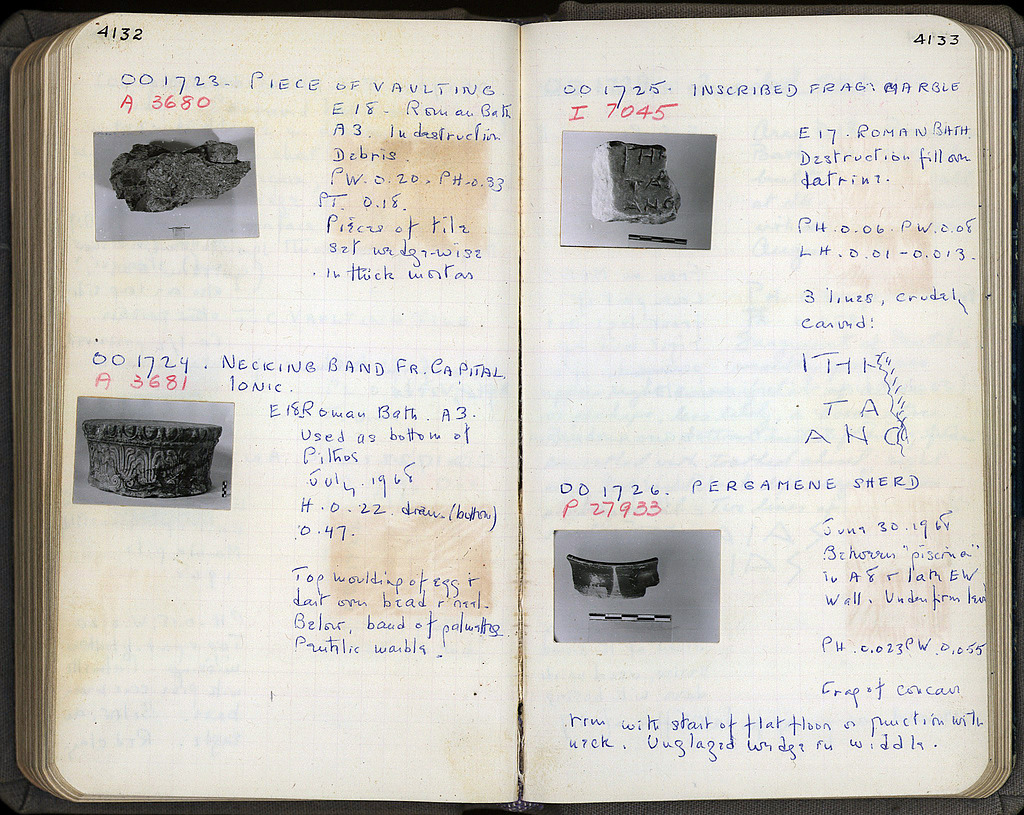 4132
OO 1723. PIECE OF VAULTING
A 3680
E 18. Roman Bath
A 3. In destruction
Debris.
PW. 0.20. PH. 0.33
PT. 0.18.
Pieces of tile
set wedge-wise
in thick mortar
OO 1724. NECKING BAND FR. CAPITAL
A 3681 IONIC.
E18 Roman Bath. A 3.
Used as bottom of
Pithos
July, 1968
H. 0.22. diam. (bottom)
0.47.
Top moulding of egg +
dart over bead + reel.
Below, band of palmettes
Pentelic marble.
4133
OO 1725. INSCRIBED FRAG. MARBLE
I 7045
E 17. ROMAN BATH.
Destruction fill over
Latrine.
PH. 0.06. PW. 0.08
LH. 0.01-0.013.
3 lines, crudely
carved:
ITHK
TA
ANO
OO 1726. PERGAMENE SHERD
P 27933
June 30. 1968
Between "piscina"
in A8 + late EW
Wall. Under firm level
PH. 0.023 PW. 0.055
Frag of concave
rim with start of flat floor or junction with
neck. Unglazed wedge in middle.